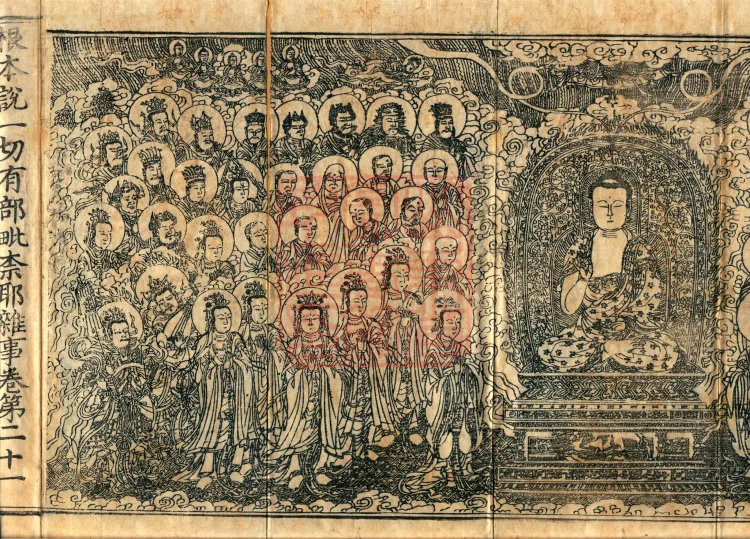 根本說一切有部毗柰耶雜事卷第二十一